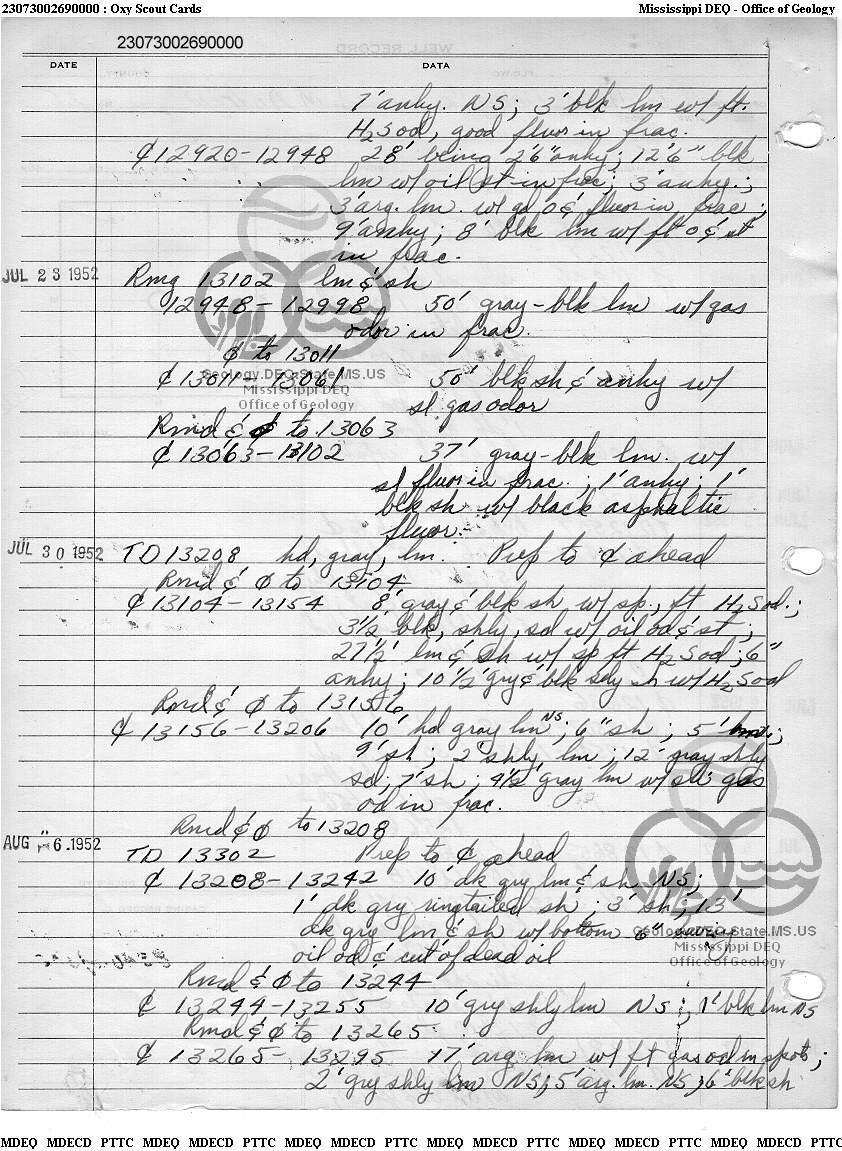 23073002690000 : Oxy Scout Cards
Mississippi DEQ - Office of Geology
23073002690000
DATE DATA
7' anhy. NS; 3' blk lm w/ ft.
H2S od, good fluor in frac.
¢ 12920-12948 28' being 2'6" anhy; 12'6" blk
lm w/ oil st in frac; 3' anhy.;
3' arg. lm. w/ gd o & fluor in frac;
9' anhy; 8' blk lm w/ ft o & st
in frac.
JUL 23 1952 Rmg 13102 lm & sh
12948-12998 50' gray-blk lm w/ gas
odor in frac.
¢ to 13011
Geology.DEQ.State.MS.US
¢ 13011-13061 50' blk sh & anhy w/
Mississippi DEQ
Office of Geology
sl gas odor
Rmd & ø to 13063
¢ 13063-13102 37' gray-blk lm. w/
sl fluor in frac.; 1' anhy; 1'
blk sh w/ black asphaltic
fluor.
JUL 30 1952 TD 13208 hd, gray, lm. Prep to ¢ ahead
Rmd & ø to 13104
¢ 13104-13154 8' gray & blk sh w/ sp., ft H2S od.;
3 1/2' blk, shly, sd w/ oil od & st;
27 1/2' lm & sh w/ sp ft H2S od; 6"
anhy; 10 1/2' gry & blk sdy sh w/ H2S od
Rmd & ø to 13156
¢ 13156-13206 10' hd gray lm NS; 6" sh; 5' lm;
9' sh; 2' shly, lm; 12' gray shly
sd; 7' sh; 4 1/2' gray lm w/ sli gas
od in frac.
Rmd & ø to 13208
AUG 6 1952 TD 13302 Prep to ¢ ahead
¢ 13208-13242 10' dk gry lm & sh NS;
1' dk gry ringtailed sh; 3' sh; 13'
dk gry lm & sh w/ bottom 6" having
Geology.DEQ.State.MS.US
Mississippi DEQ
Office of Geology
oil od & cut of dead oil
Rmd & ø to 13244
¢ 13244-13255 10' gry shly lm NS; 1' blk lm NS
Rmd & ø to 13265
¢ 13265-13295 17' arg lm w/ ft gas od in spots;
2' grey shly lm NS; 5' arg. lm. NS; 6' blk sh
MDEQ MDECD PTTC MDEQ MDECD PTTC MDEQ MDECD PTTC MDEQ MDECD PTTC MDEQ MDECD PTTC MDEQ MDECD PTTC